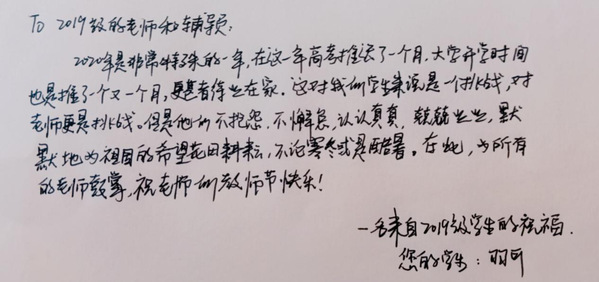 To 2019级的老师和辅导员:
2020年是非常特殊的一年,在这一年高考推迟了一个月,大学开学时间
也是推了一个又一个月,更甚者停业在家。这对我们学生来说是一个挑战,对
老师更是挑战。但是他们不抱怨,不懈怠,认认真真,兢兢业业,默
默地为祖国的希望花田耕耘,不论寒冬或是酷暑。在此,为所有
的老师鼓掌,祝老师们教师节快乐!
一名来自2019级学生的祝福.
您的学生: